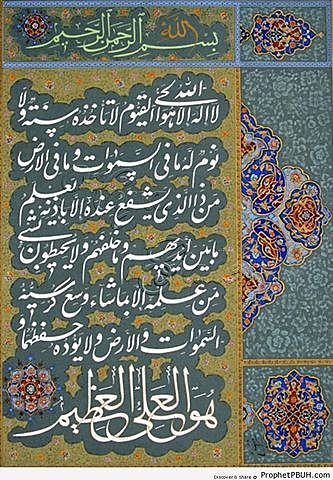 بسم الله الرحمن الرحيم
الله
لا اله الا هو الحي القيوم لا تأخذه سنة ولا
نوم له ما في السموات وما في الارض
من ذا الذي يشفع عنده الا باذنه يعلم
ما بين ايديهم وما خلفهم ولا يحيطون بشئ
من علمه الا بما شاء وسع كرسيه
السموات والارض ولا يؤده حفظهما و
هو العلي العظيم
Discover & Share @ ProphetPBUH.com